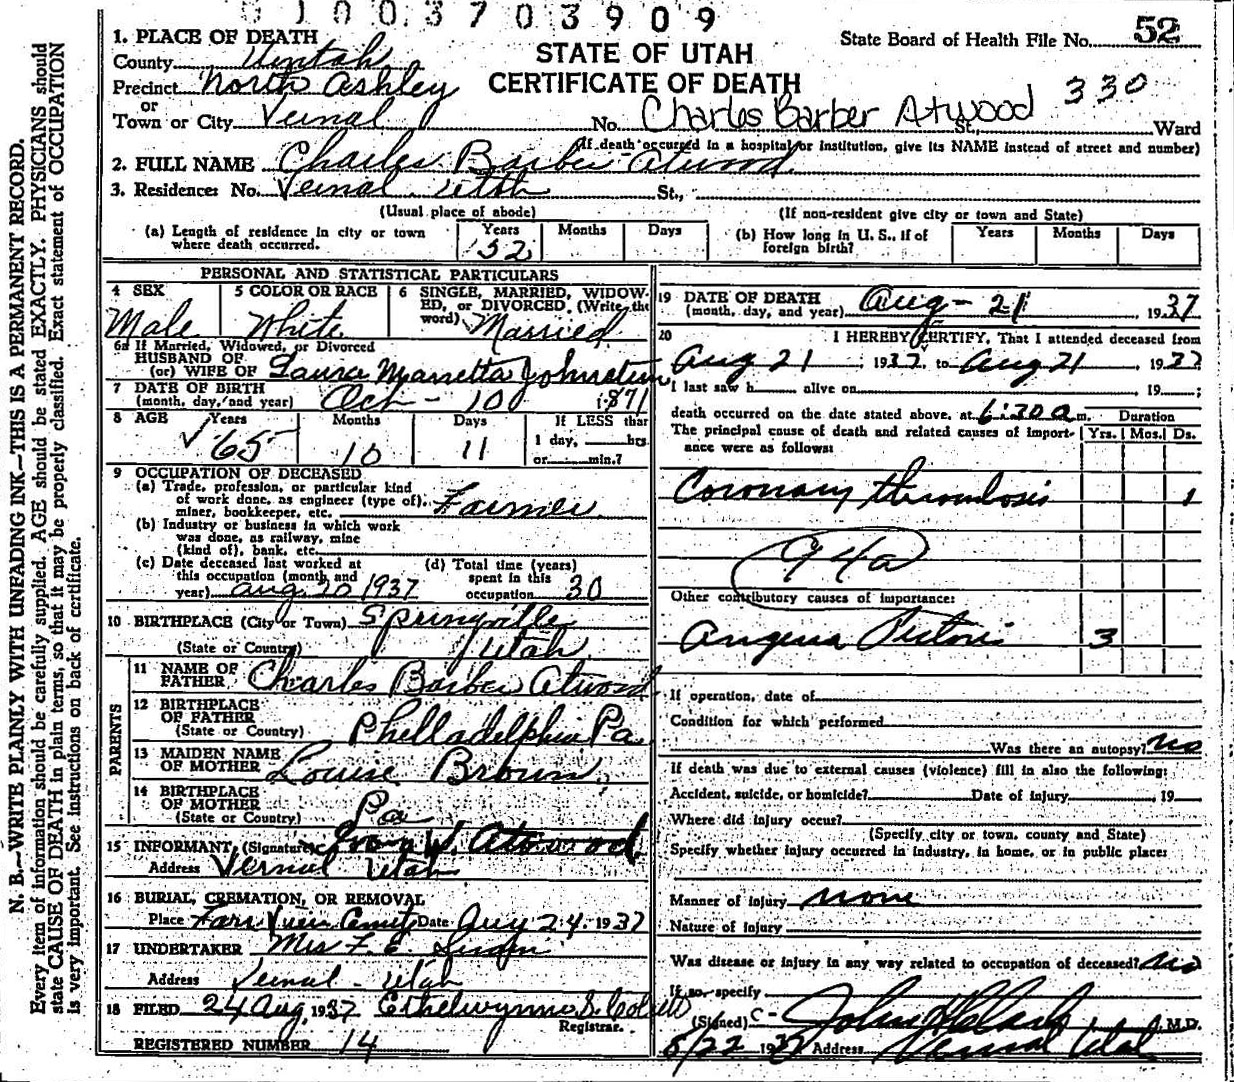 01003703909
52
1. PLACE OF DEATH
State Board of Health File No.
County Uintah
STATE OF UTAH
Precinct North Ashley
CERTIFICATE OF DEATH
330
or
Town or City Vernal No. Charles Barber Atwood St., Ward
(If death occurred in a hospital or institution, give its NAME instead of street and number)
2. FULL NAME Charles Barber Atwood
3. Residence: No. Vernal Utah St.,
(Usual place of abode) (If non-resident give city or town and State)
(a) Length of residence in city or town where death occurred. Years 52 Months Days
(b) How long in U. S., if of foreign birth? Years Months Days
PERSONAL AND STATISTICAL PARTICULARS
4 SEX Male
5 COLOR OR RACE White
6 SINGLE, MARRIED, WIDOW-
ED, or DIVORCED. (Write the
word) Married
6a If Married, Widowed, or Divorced
HUSBAND OF
(or) WIFE OF Laura Marretta Johnston
7 DATE OF BIRTH
(month, day, and year) Oct - 10 1871
8 AGE Years 65 Months 10 Days 11
If LESS than
1 day, hrs.
or min.?
9 OCCUPATION OF DECEASED
(a) Trade, profession, or particular kind
of work done, as engineer (type of),
miner, bookkeeper, etc. Farmer
(b) Industry or business in which work
was done, as railway, mine
(kind of), bank, etc.
(c) Date deceased last worked at
this occupation (month and
year) Aug. 20 1937
(d) Total time (years)
spent in this
occupation 30
10 BIRTHPLACE (City or Town) Springville
(State or Country) Utah
PARENTS
11 NAME OF
FATHER Charles Barber Atwood
12 BIRTHPLACE
OF FATHER
(State or Country) Philladelphia Pa
13 MAIDEN NAME
OF MOTHER Louise Brown
14 BIRTHPLACE
OF MOTHER
(State or Country) Pa
15 INFORMANT, (Signature) W. Atwood
Address Vernal Utah
16 BURIAL, CREMATION, OR REMOVAL
Place Date Aug 24, 1937
17 UNDERTAKER Mrs F. E.
Address Vernal - Utah
18 FILED 24 Aug, 1937 Ethelwynne S.
Registrar.
REGISTERED NUMBER 14
19 DATE OF DEATH
(month, day, and year) Aug - 21, 1937
20 I HEREBY CERTIFY, That I attended deceased from
Aug 21, 1937, to Aug 21, 1937
I last saw h alive on , 19 ;
death occurred on the date stated above, at 6:30 a m.
Duration
The principal cause of death and related causes of import-
ance were as follows:
Yrs. Mos. Ds.
Coronary thrombosis 1
94a
Other contributory causes of importance:
Angina Pectoris 3
If operation, date of
Condition for which performed
Was there an autopsy? no
If death was due to external causes (violence) fill in also the following:
Accident, suicide, or homicide? Date of injury , 19
Where did injury occur?
(Specify city or town, county and State)
Specify whether injury occurred in industry, in home, or in public place:
Manner of injury none
Nature of injury
Was disease or injury in any way related to occupation of deceased? no
If so, specify
(Signed) John , M.D.
8/22 1937 Address Vernal Utah
N. B.—WRITE PLAINLY WITH UNFADING INK—THIS IS A PERMANENT RECORD.
Every item of information should be carefully supplied. AGE should be stated EXACTLY. PHYSICIANS should
state CAUSE OF DEATH in plain terms, so that it may be properly classified. Exact statement of OCCUPATION
is very important. See instructions on back of certificate.